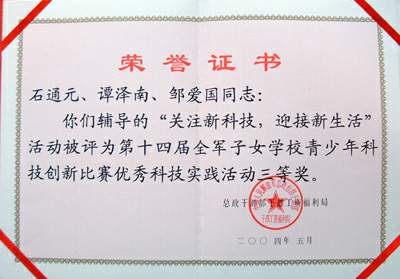 荣誉证书
石通元、谭泽南、邹爱国同志：
你们辅导的“关注新科技，迎接新生活”
活动被评为第十四届全军子女学校青少年科
技创新比赛优秀科技实践活动三等奖。
总政干部部干部工薪福利局
二〇〇四年 五月